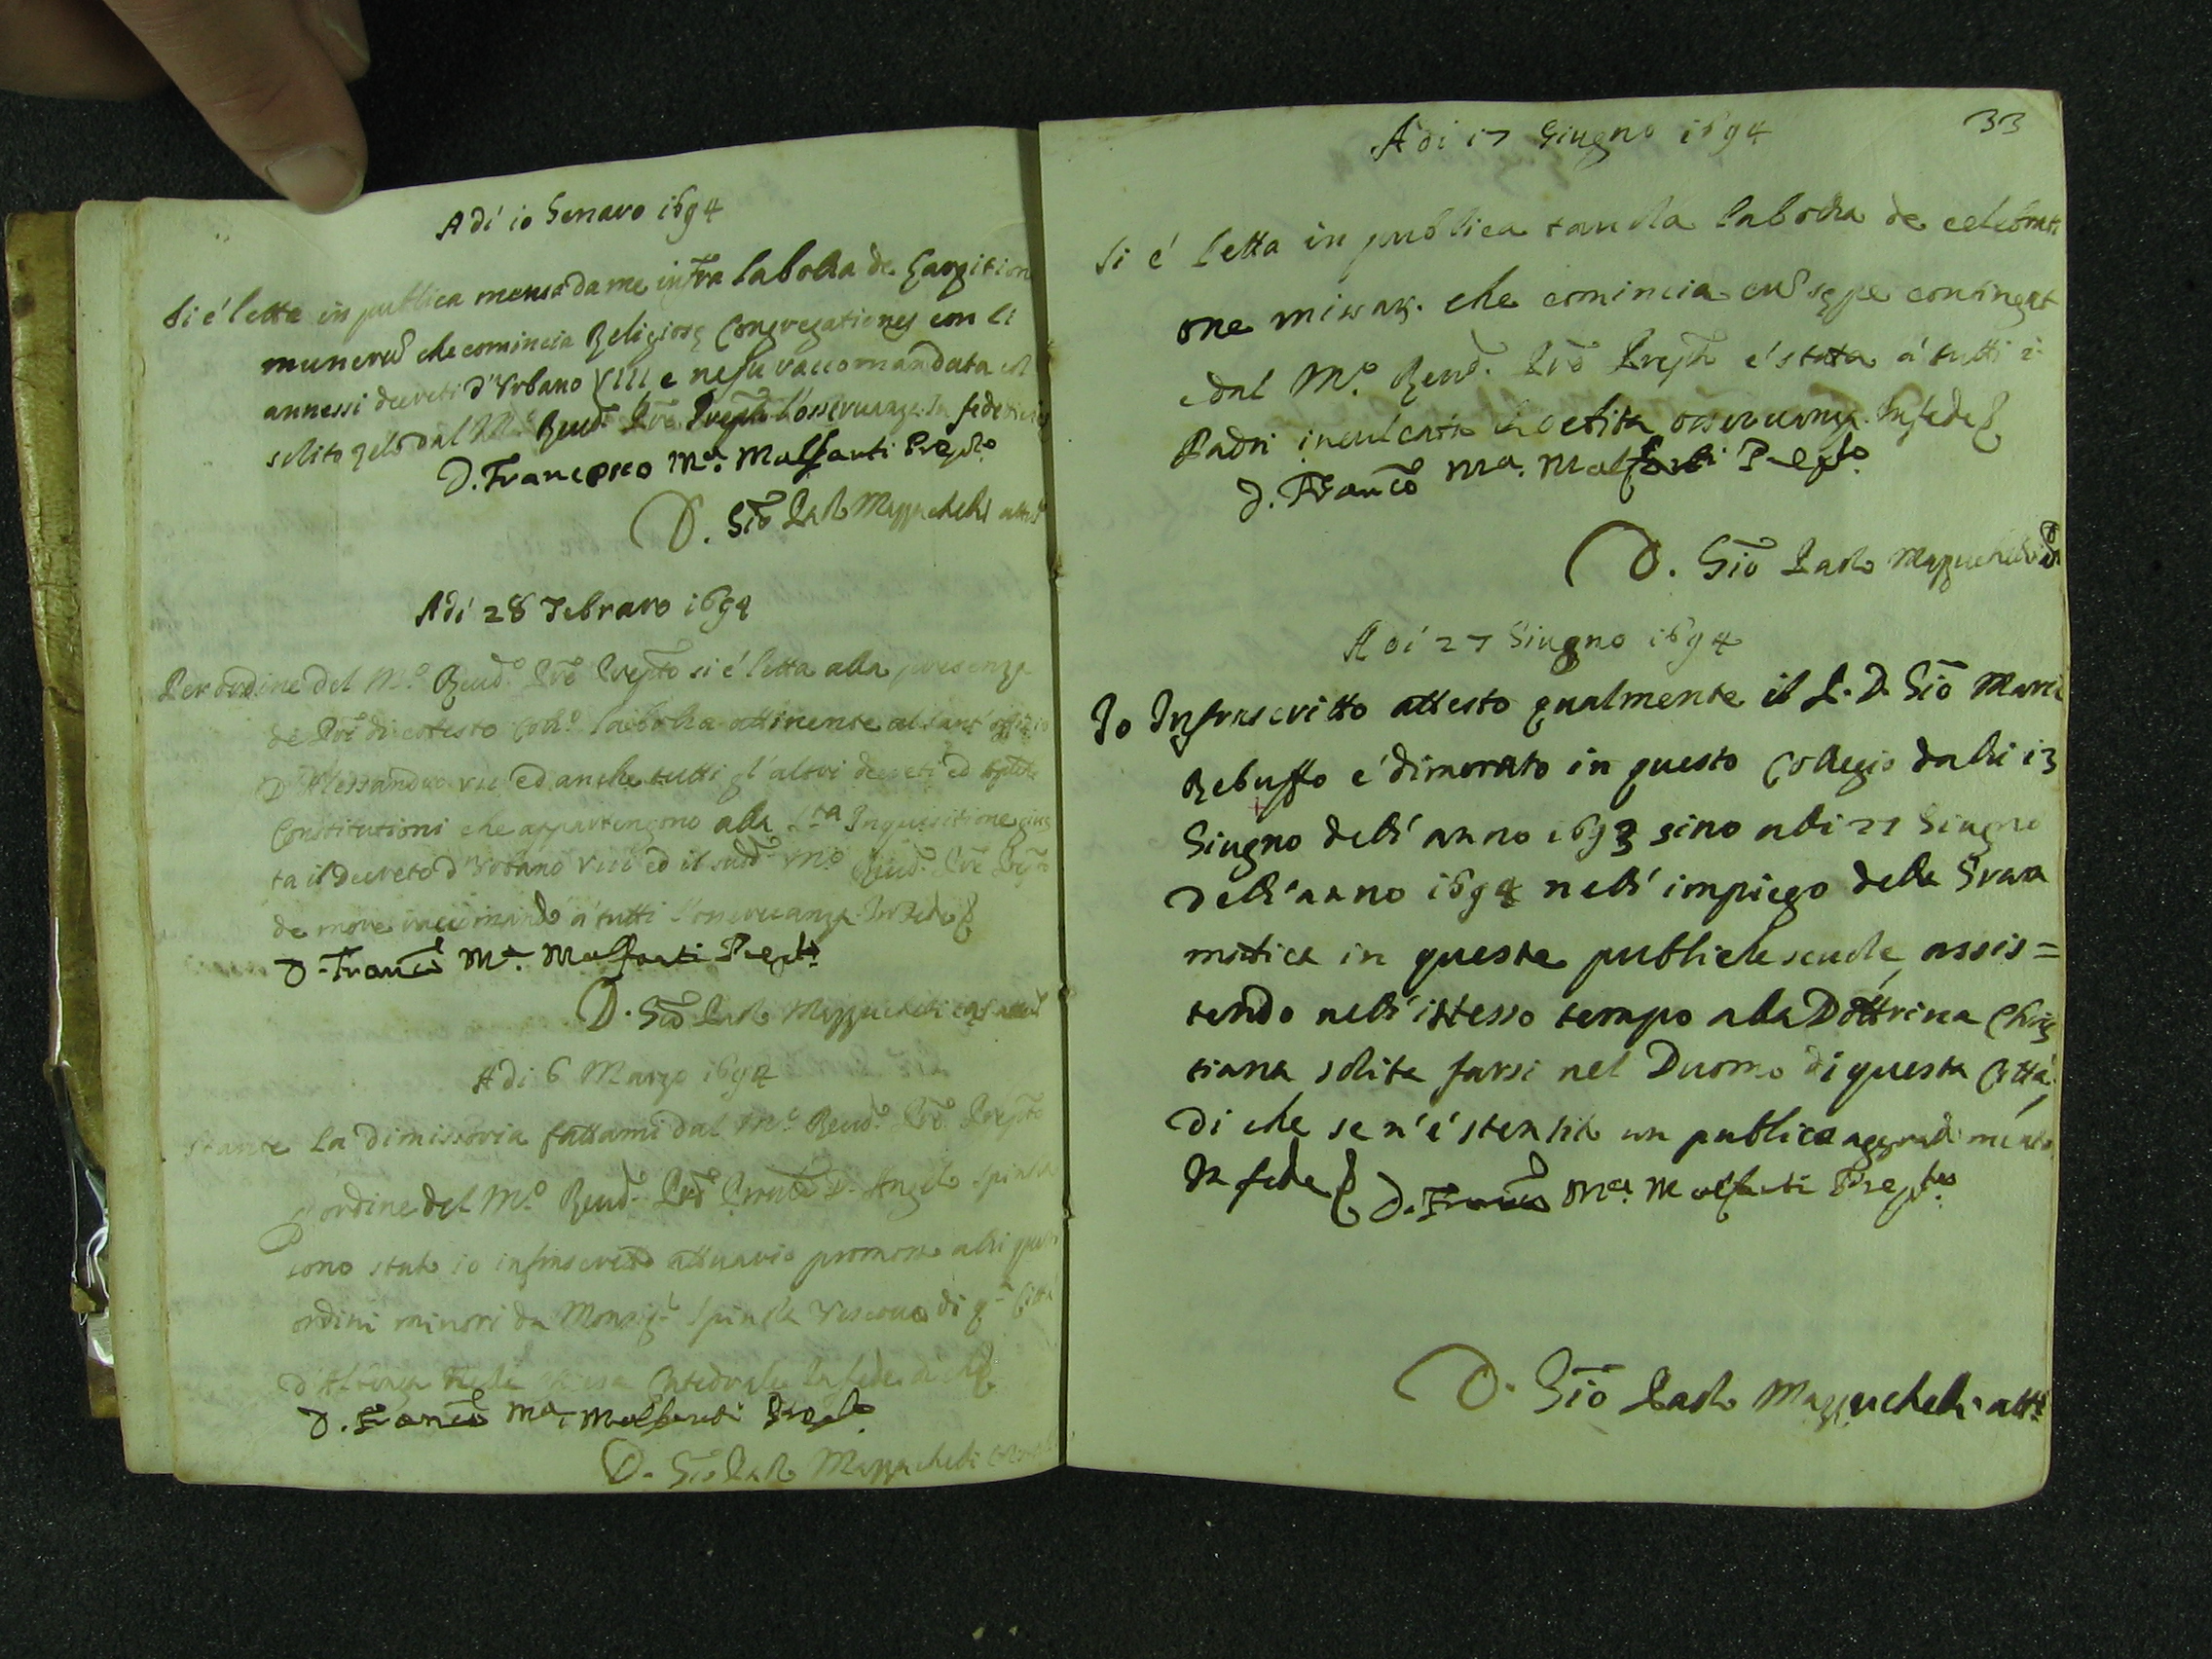 Adi 10 Genaro 1694
Si é letta in publica mensa da me infra la bolla de Largition
munerū che comincia Religiosę Congregationes con li
annessi decreti d'Urbano VIII e ne fu raccomandata col
solito zelo dal M.º Reud.º Prē Prep.to l'osservanza. In fede
D. Francesco M.a Malfanti Prep.to
D. Giō Paolo Mazzuchelli att.
Adi 28 Febraro 1694
Per ordine del M.º Reud.º Prē Prep.to si é letta alla presenza
de Pri di cotesto Coll.º la bolla attinente al sant'offizio
D'Alessandro VII ed anche tutti gl'altri decreti ed
Constitutioni che appartengono alla S.ta Inquisitione gius
ta il decreto d'Urbano VIII ed il sudd.º M.º Reud.º Prē Prep.to
de more raccomandò á tutti l'osservanza. In Fede
D. Franc.º M.a Malfanti Prep.to
D. Giō Paolo Mazzuchelli
Adi 6 Marzo 1694
Stante la dimissoria fattami dal M.º Reud.º Prē Prep.to
d'ordine del M.º Reud.º Prē D. Angelo Spinola
sono stato io infrascritto attuario promosso alli
ordini minori da Monsig.r Spinola Vescovo di q.ta Città
d'Albenga nella chiesa Catedrale. In fede di che
D. Franc.º M.a Malfanti Prep.to
D. Giō Paolo Mazzuchelli
33
Adi 17 Giugno 1694
Si é letta in publica tauola la bolla de celebrati
one missar. che comincia cū sępe contingat
e dal M.º Reud.º Prē Prep.to é stata á tutti i
Padri inculcata la osservanza. In fede
D. Franc.º M.a Malfanti Prep.to
D. Giō Paolo Mazzuchelli
Adi 27 Giugno 1694
Io Infrascritto attesto qualmente il P. D. Giō Maria
Rebuffo é dimorato in questo Collegio dalli 13
Giugno dell'anno 1693 sino alli 27 Giugno
dell'anno 1694 nell'impiego della Gram
matica in queste publiche scuole, assis=
tendo nell'istesso tempo alla Dottrina Chris
tiana solita farsi nel Duomo di questa Città,
di che se n'é sentito un publico aggradimento.
In fede D. Franc.º M.a Malfanti Prep.to
D. Giō Paolo Mazzuchelli att.º